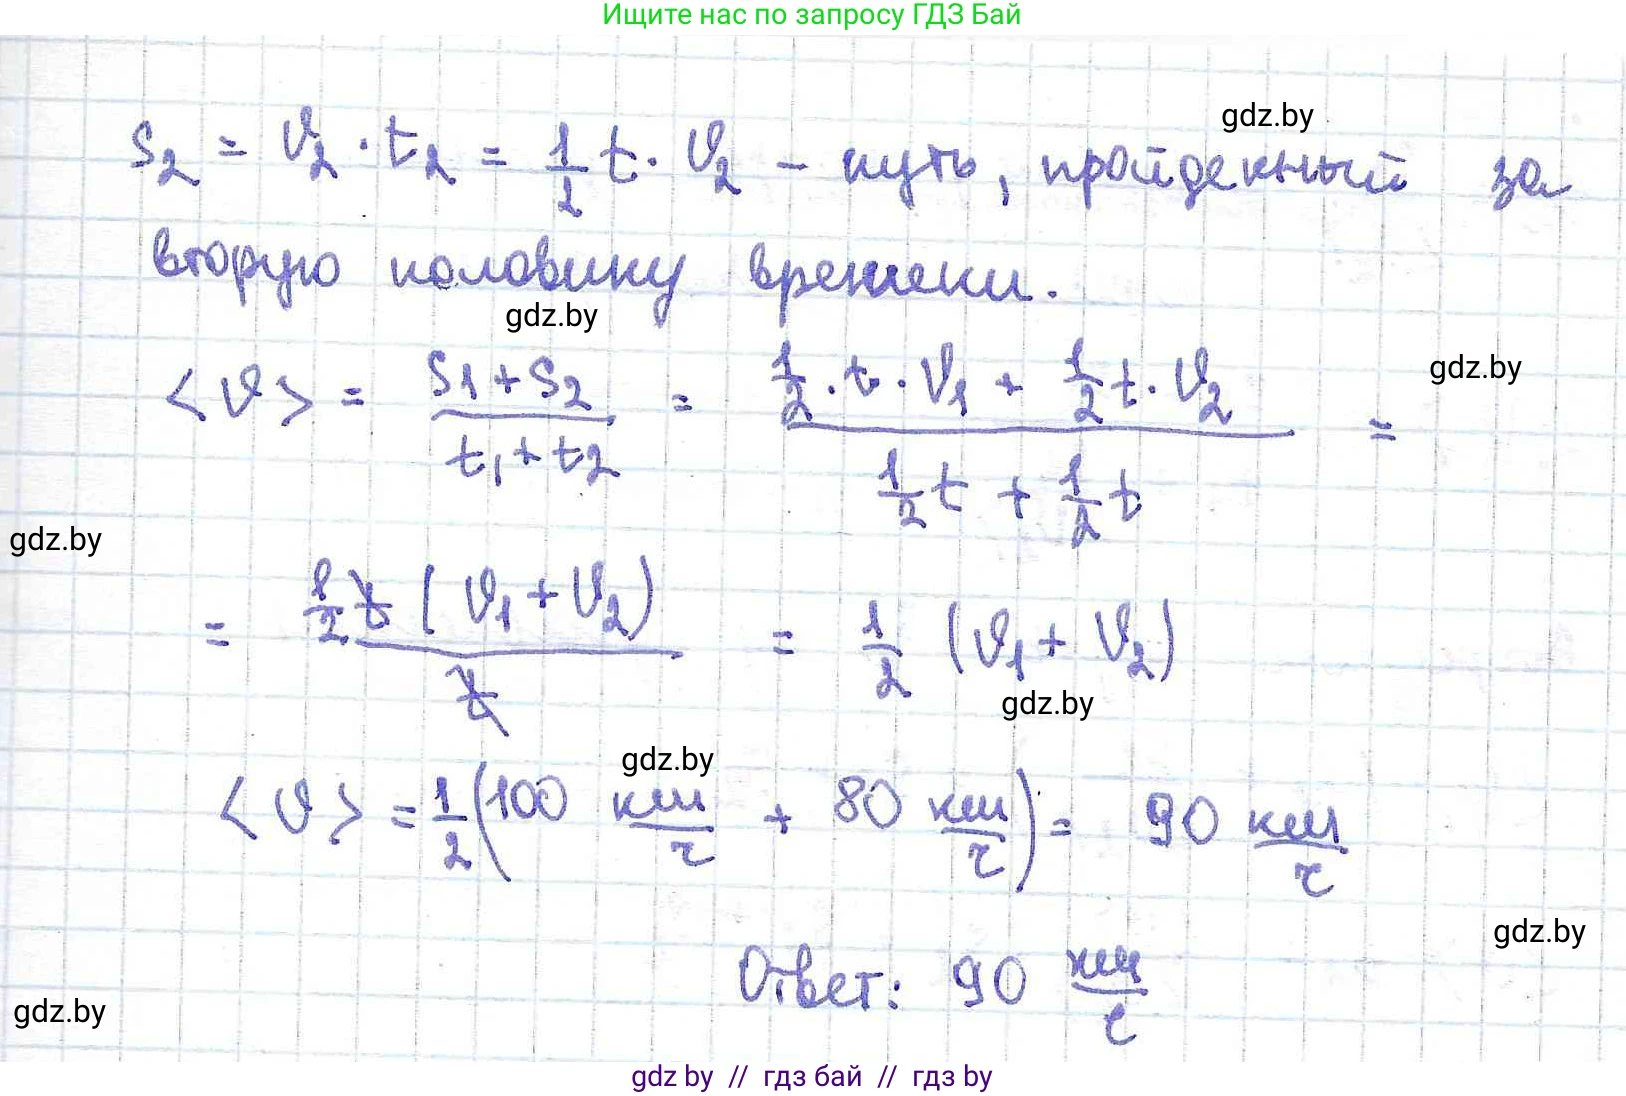 Ищите нас по запросу ГДЗ Бай
gdz.by
S₂ = v₂ · t₂ = 1/2 t · v₂ – путь, пройденный за
вторую половину времени.
gdz.by
gdz.by
<v> = (S₁ + S₂)/(t₁ + t₂) = (1/2 · t · v₁ + 1/2 t · v₂)/(1/2 t + 1/2 t) =
gdz.by
= (1/2 t (v₁ + v₂))/t = 1/2 (v₁ + v₂)
gdz.by
gdz.by
<v> = 1/2 (100 км/ч + 80 км/ч) = 90 км/ч
gdz.by
Ответ: 90 км/ч
gdz.by
gdz by // гдз бай // гдз by